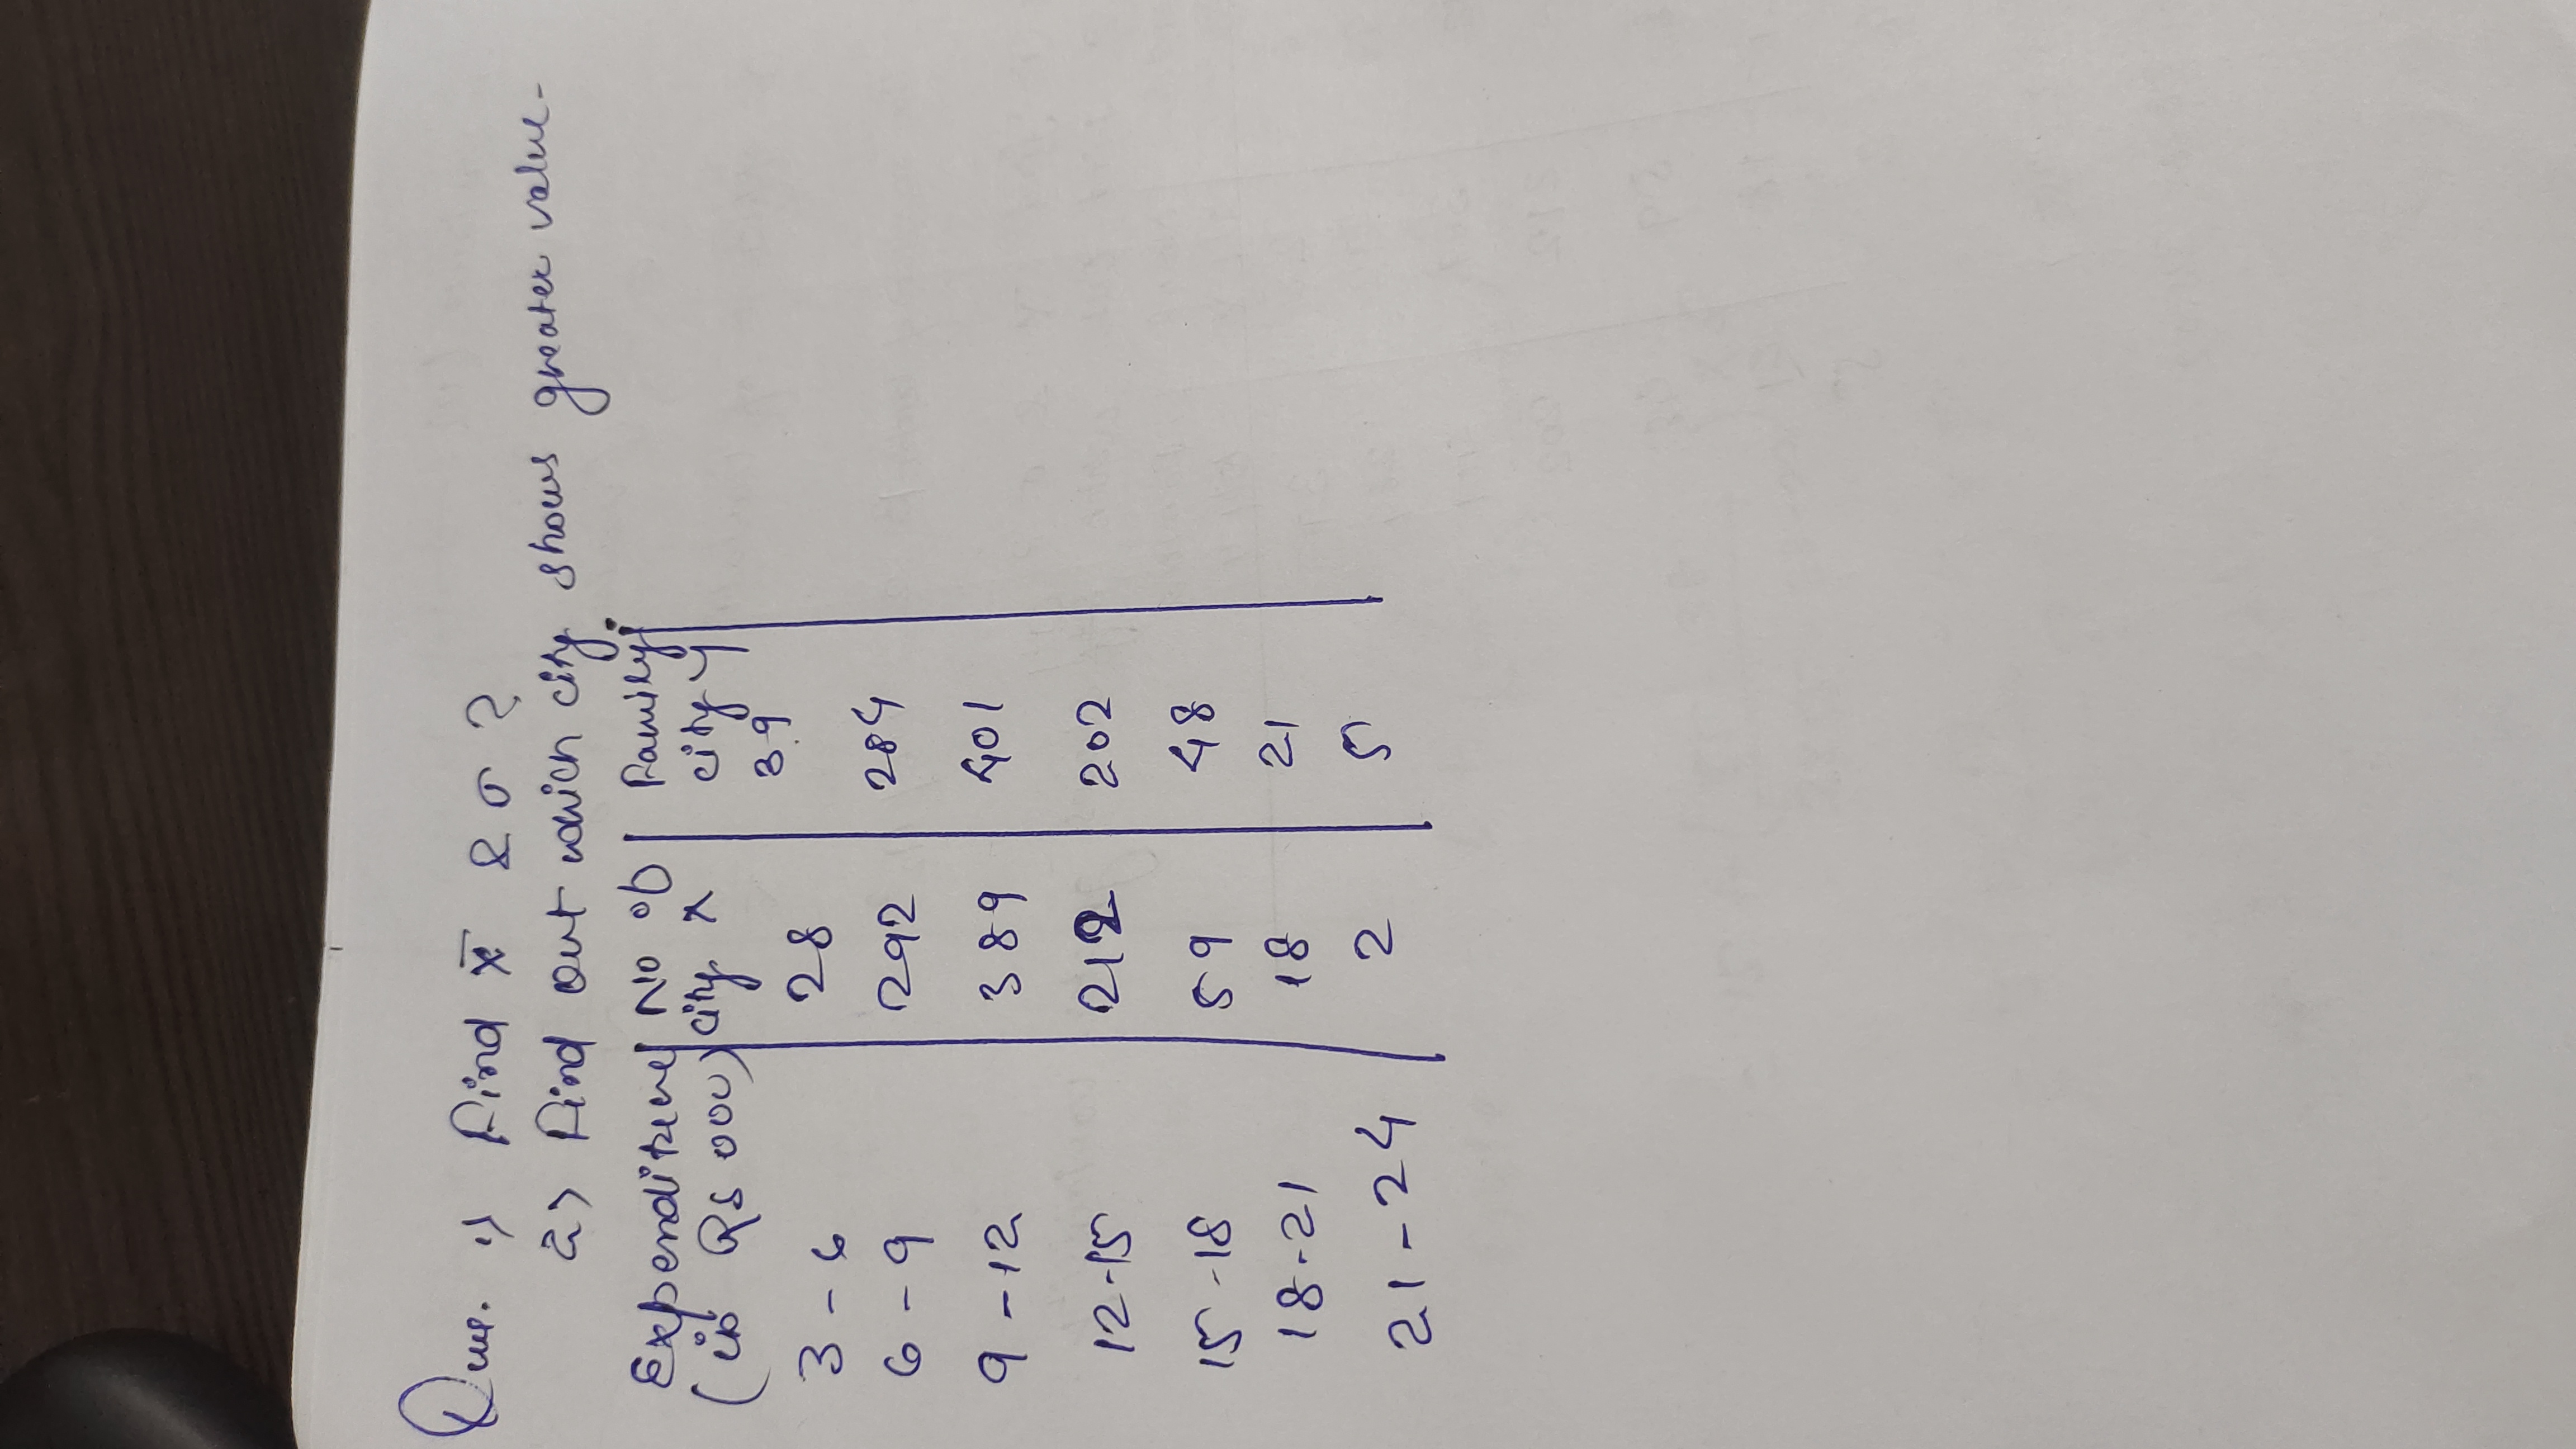 Que. 1) Find x̄ & σ ?
2) Find out which city shows greater value.
Expenditure | No of | Family
(in Rs 000) | city x | city y
3 - 6 | 28 | 39
6 - 9 | 292 | 284
9 - 12 | 389 | 401
12-15 | 212 | 202
15-18 | 59 | 48
18-21 | 18 | 21
21-24 | 2 | 5